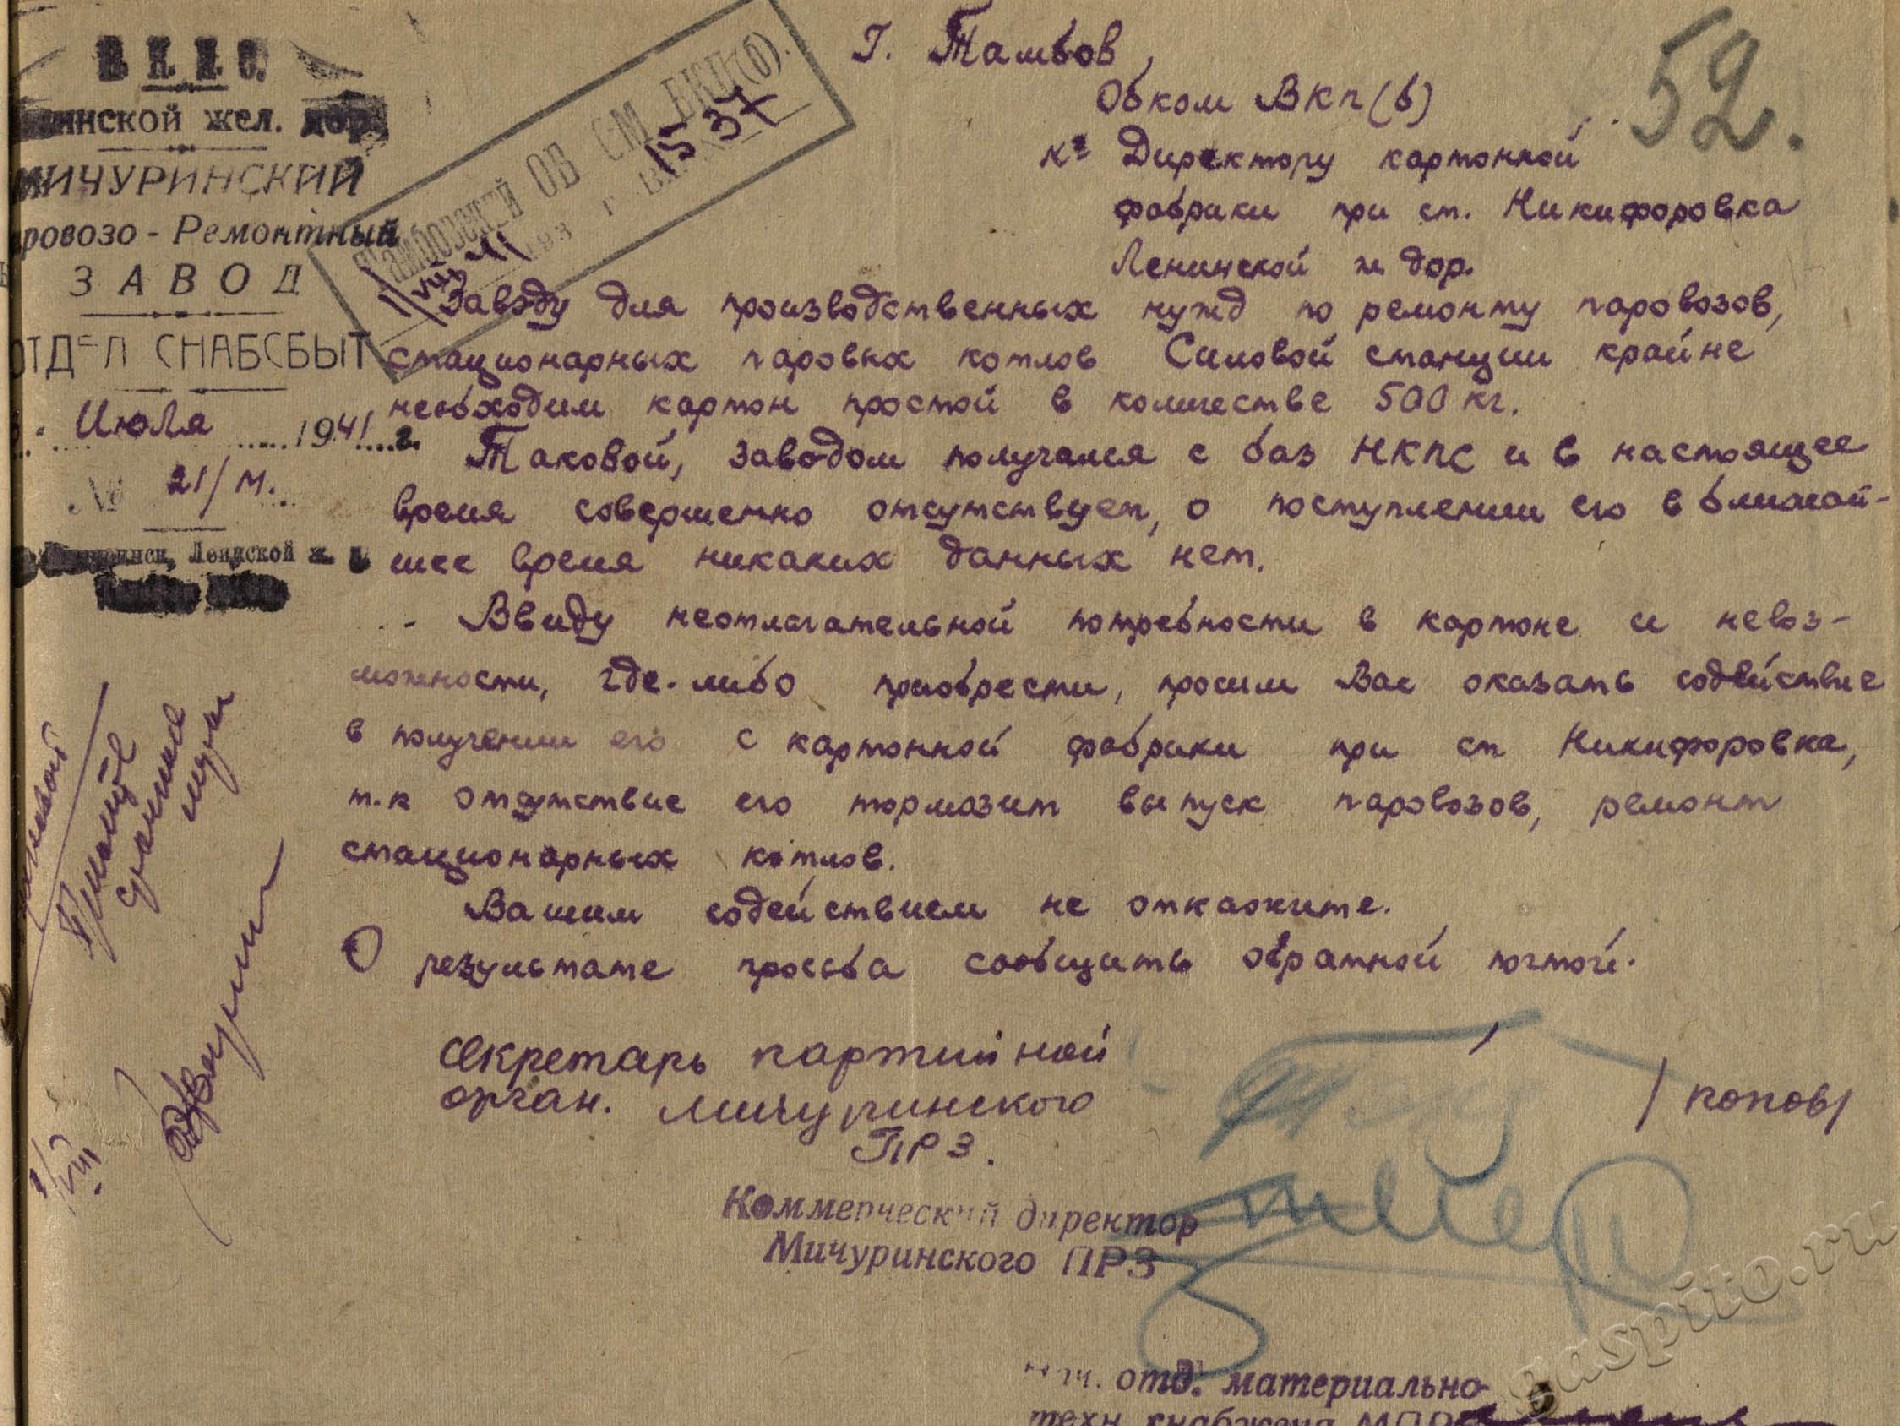 52.
Н. К. П. С.
нинской жел. дор.
МИЧУРИНСКИЙ
ровозо - Ремонтный
ЗАВОД
ОТДЕЛ СНАБСБЫТ
Июля 1941 г.
№ 21/м.
Лендской ж.
Тамбовский ОБ ОМ ВКП(б).
15 37
VIII 41
г. Тамбов,
Обком ВКп(б)
к: Директору картонной
фабрики при ст. Никифоровка
Ленинской ж дор.
Заводу для производственных нужд по ремонту паровозов,
стационарных паровых котлов Силовой станции крайне
необходим картон простой в количестве 500 кг.
Таковой, заводом получался с баз НКПС и в настоящее
время совершенно отсутствует, о поступлении его в ближай-
шее время никаких данных нет.
Ввиду неотлагательной потребности в картоне и невоз-
можности, где-либо приобрести, просим Вас оказать содействие
в получении его с картонной фабрики при ст Никифоровка,
т.к отсутствие его тормозит выпуск паровозов, ремонт
стационарных котлов.
Вашим содействием не откажите.
О результате просьба сообщить обратной почтой.
секретарь партийной
орган. мичуринского
ПРЗ.
/попов/
Коммерческий директор
Мичуринского ПРЗ
Нач. отд. материально
техн. снабжена
gaspito.ru